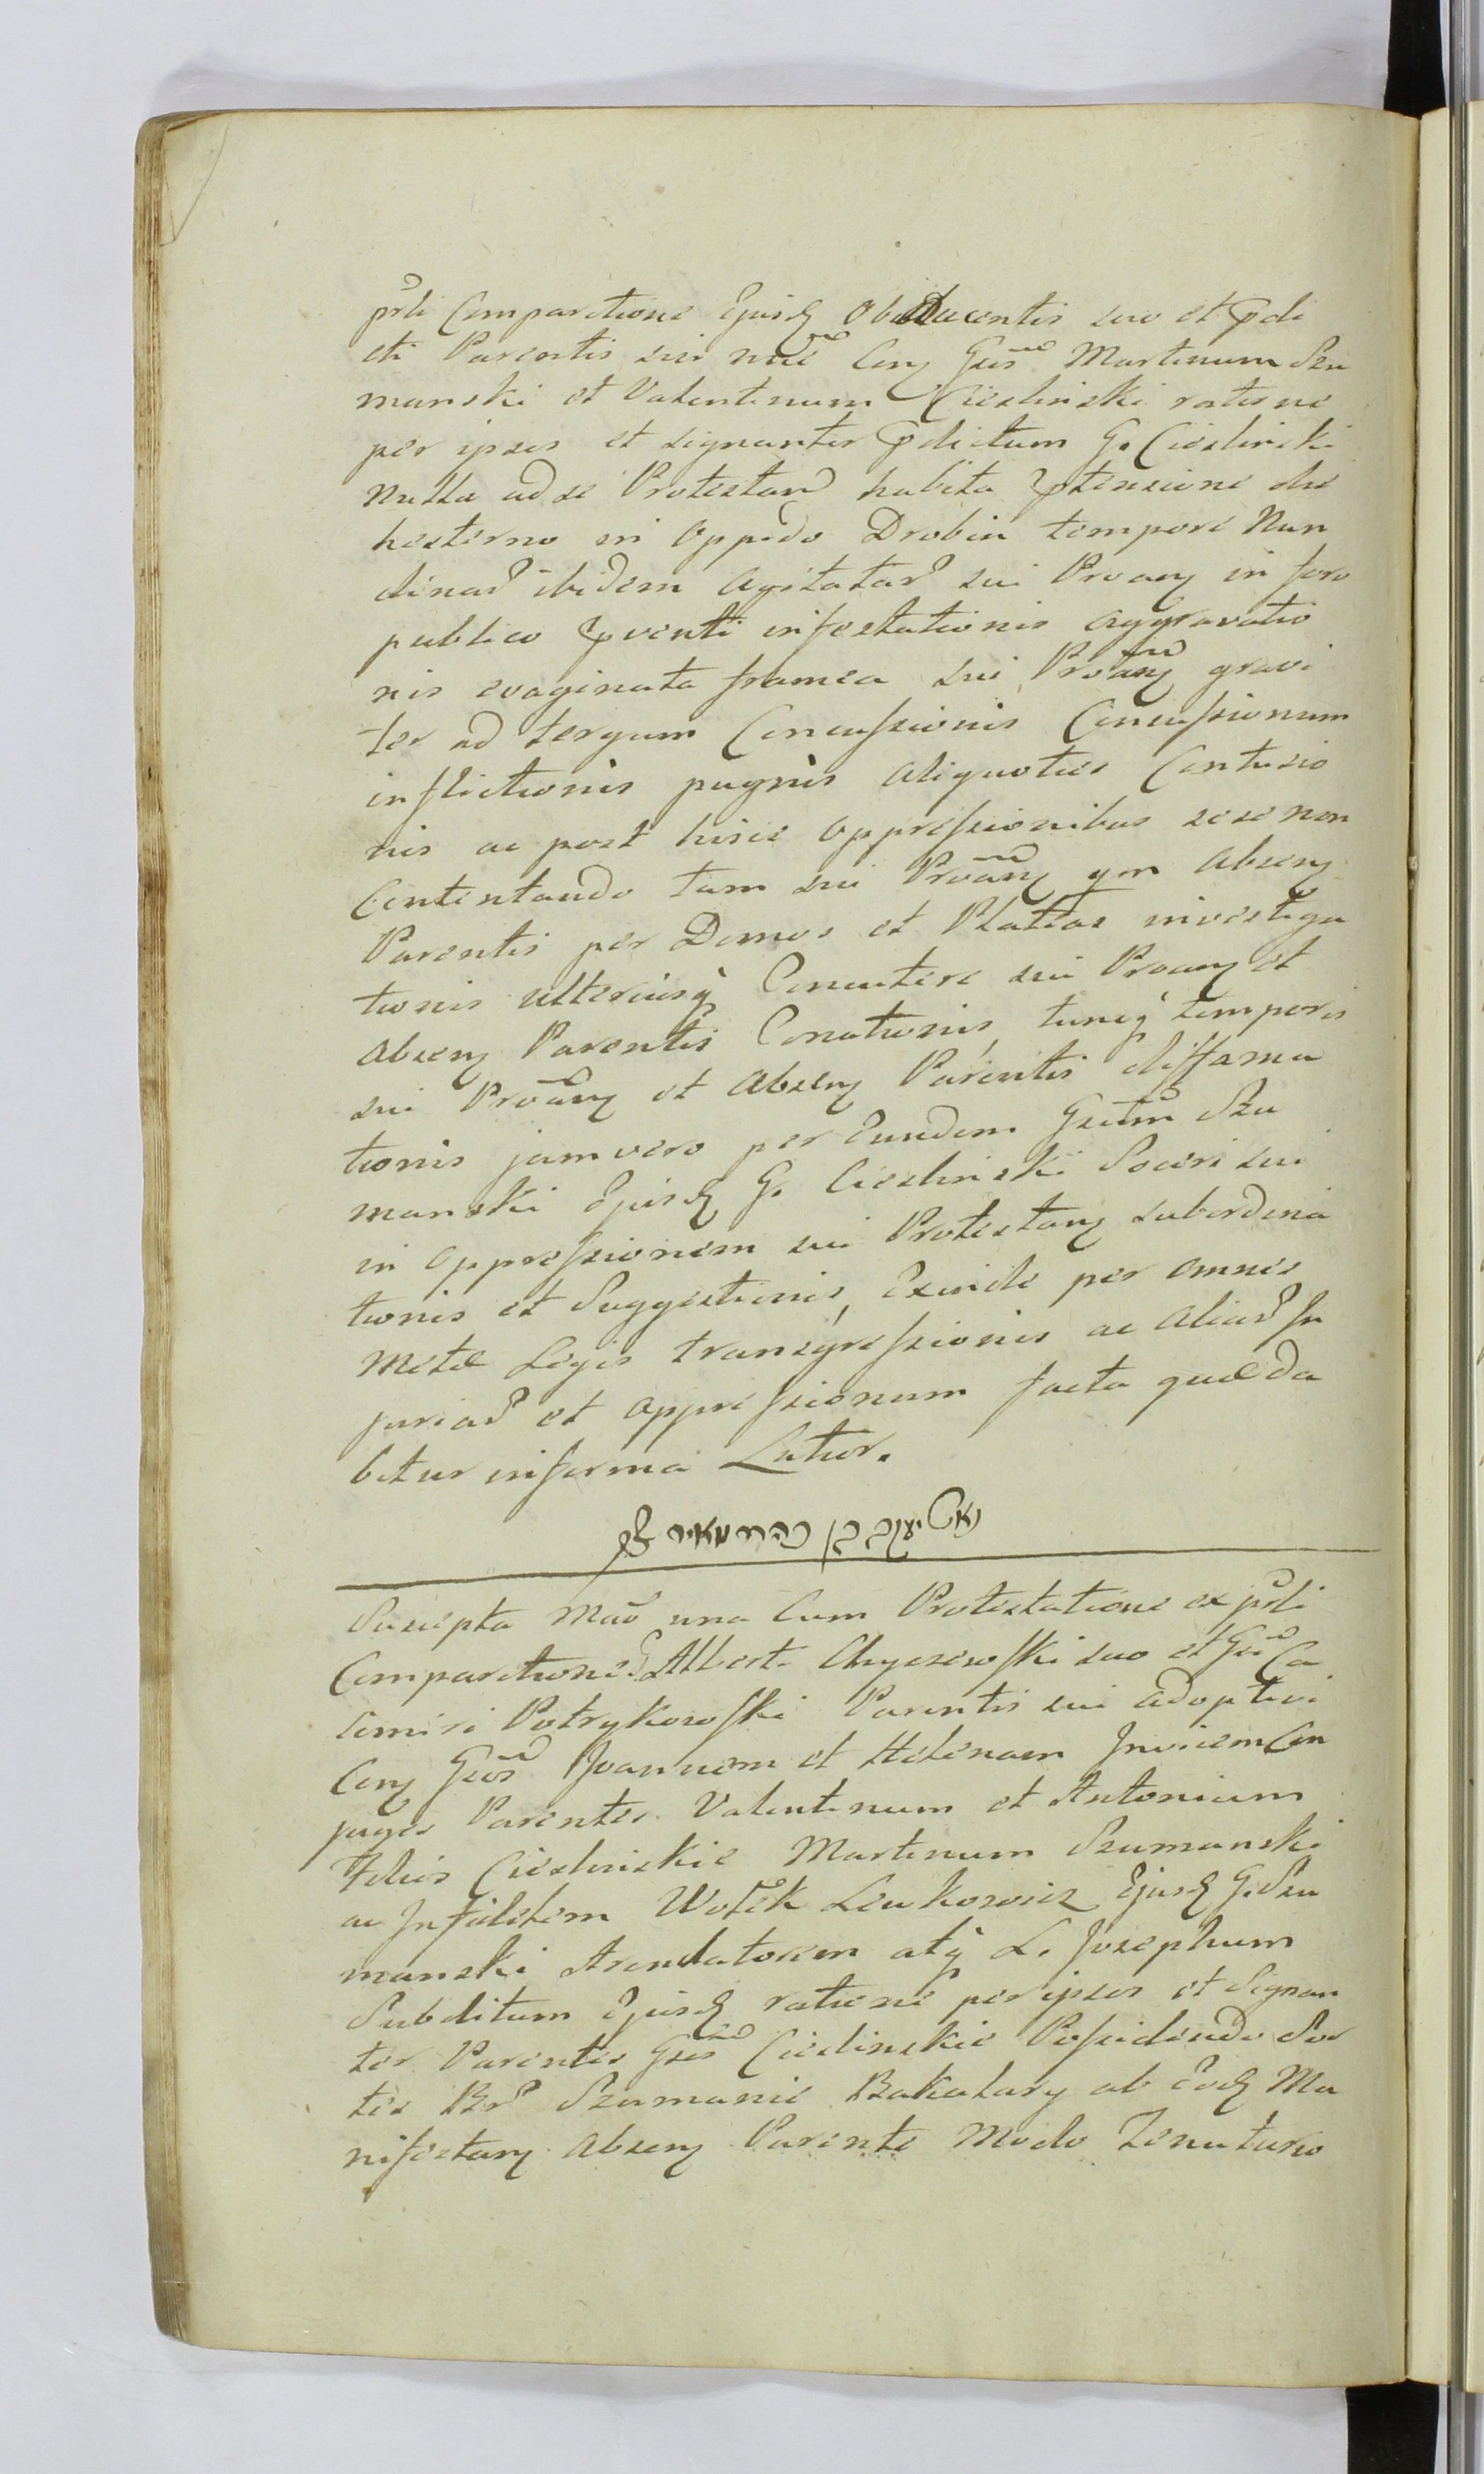 prli Comparitione Ejusq Obducentis suo et pdi
cti Parentis sui nõe Con Gsos Martinum Szu
manski et Valentinum Cieslinski ratione
per ipsos et signanter pdictum G. Cieslinski
Nulla ad se Protestan habita ptensione die
hesterno in Oppido Drobin tempore Nun
dinar ibidem agitatar sui Proan in foro
publico pventi infestationis aggravatio
nis evaginata framea sui Proan gravi
ter ad tergum Concussionis Concussionum
inflictionis pugnis aliquoties Contusio
nis ac post hisce oppressionibus sese non
Contentando tam sui Proan qm absen
Parentis per Domos et Plateas investiga
tionis ulteriusq Concutere sui Proan et
absen Parentis Conationis, tuncq temporis
sui Proan et Absen Parentis diffama
tionis jam vero per Eundem Gsum Szu
manski Ejusq G. Cieslinski Soceri sui
in oppressionem sui Protestan subordina
tionis et Suggestionis, Exinde per omnes
metæ Legis transgressionis ac aliar In
juriar et oppressionum facta quæ da
bitur in forma Latior.
Suscepta Mão una Cum Protestatione ex prli
Comparitione G Alberti Chyczewski suo et Gsi Ca
simiri Potrykowski Parentis sui adoptivi
Con Gsos Joannem et Helenam Invicem Con
juges Parentes Valentinum et Antonium
Filios Cieslinskie Martinum Szumanski
ac Infidelem Wolek Lewkowicz Ejusq G. Szu
manski Arendatorem atq L. Josephum
Subditum Ejusq ratione per ipsos et Signan
ter Parentes Gsos Cieslinskie Possidendo Sor
tes Br Szumanie Bakalary ab Eodq Ma
nifestan absen Parente modo Tenutario